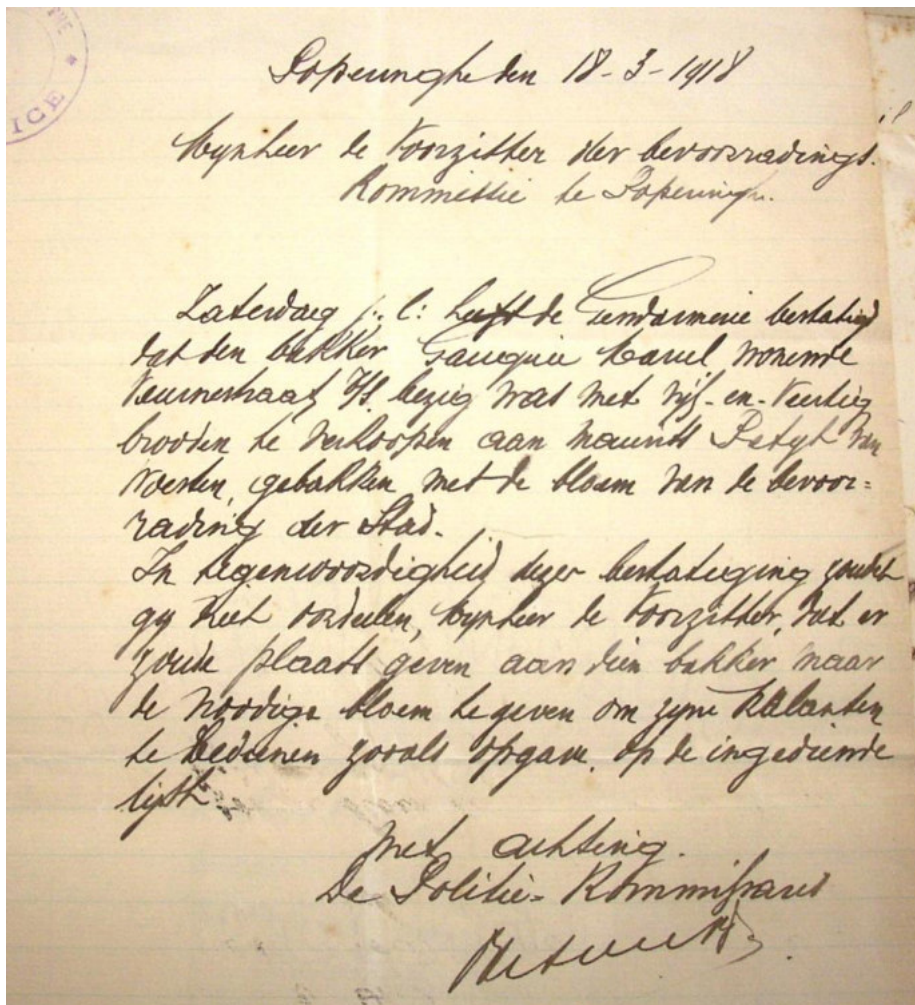 ICE
Poperinghe den 18-3-1918
Mynheer de Voorzitter der bevoorradings.
Kommissie te Poperinghe.
Zaterdag j:l: heeft de Gendarmerie bestatigd
dat den bakker Camiel wonende
Veurnestraat bezig was met vijf-en-Veertig
brooden te verkoopen aan Petyt van
Woesten, gebakken met de bloem van de bevoor=
rading der Stad.
In tegenwoordigheid dezer bestatiging zoudet
gy niet oordeelen, Mynheer de Voorzitter, dat er
zoude plaats geven aan dien bakker maar
de noodige bloem te geven om zyne Kalanten
te bedienen zooals opgave, op de ingediende
lijst.
Met achting.
De Politie-Kommissaris